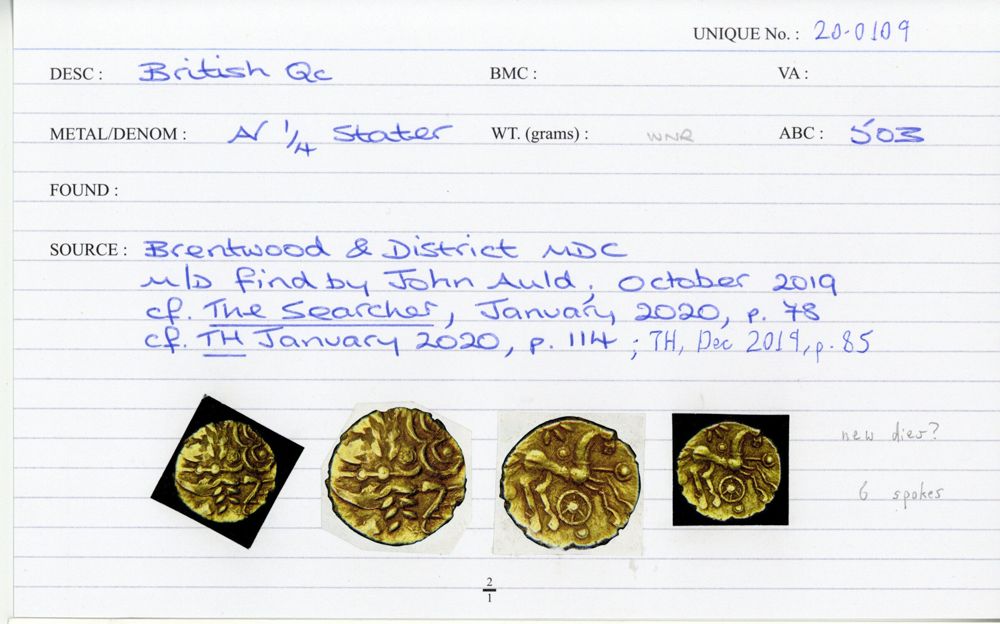 UNIQUE No. : 20-0109
DESC : British Qc BMC : VA :
METAL/DENOM : AV 1/4 Stater WT. (grams) : WNR ABC : 503
FOUND :
SOURCE : Brentwood & District MDC
M/D find by John Auld, October 2019
cf. The Searcher, January 2020, p. 78
cf. TH January 2020, p. 114 ; TH, Dec 2019, p. 85
new dies?
6 spokes
2/1